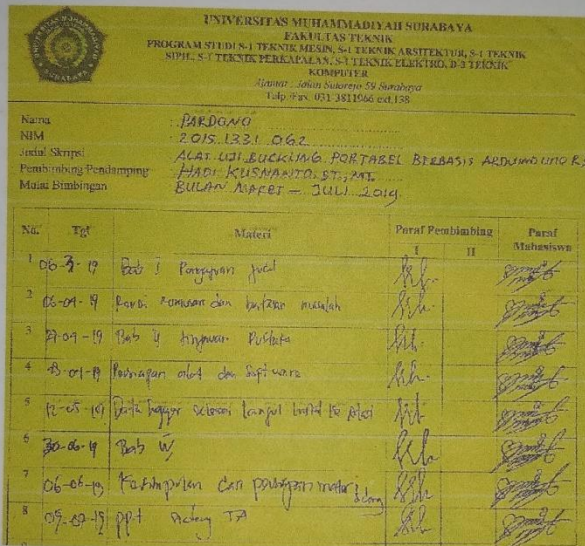 UNIVERSITAS MUHAMMADIYAH SURABAYA
FAKULTAS TEKNIK
PROGRAM STUDI S-1 TEKNIK MESIN, S-1 TEKNIK ARSITEKTUR, S-1 TEKNIK
SIPIL, S-1 TEKNIK PERKAPALAN, S-1 TEKNIK ELEKTRO, D-3 TEKNIK
KOMPUTER
Alamat : Jalan Sutorejo 59 Surabaya
Telp./Fax. 031 3811966 ext.138
Nama : PARDONO
NIM : 2015.1331.062
Judul Skripsi : ALAT UJI BUCKLING PORTABEL BERBASIS ARDUINO UNO R3
Pembimbing Pendamping : HADI KUSNANTO, ST., MT.
Mulai Bimbingan : BULAN MARET - JULI 2019.
No. Tgl Materi Paraf Pembimbing Paraf
I II Mahasiswa
1 06-3-19 Bab I Pengajuan judul
2 06-04-19 rumusan dan batasan masalah
3 27-04-19 Bab II tinjauan Pustaka
4 alat dan Software
5 12-05-19 selesai
6 30-06-19 Bab IV
7 06-06-19 Kesimpulan dan
8 ppt sidang TA